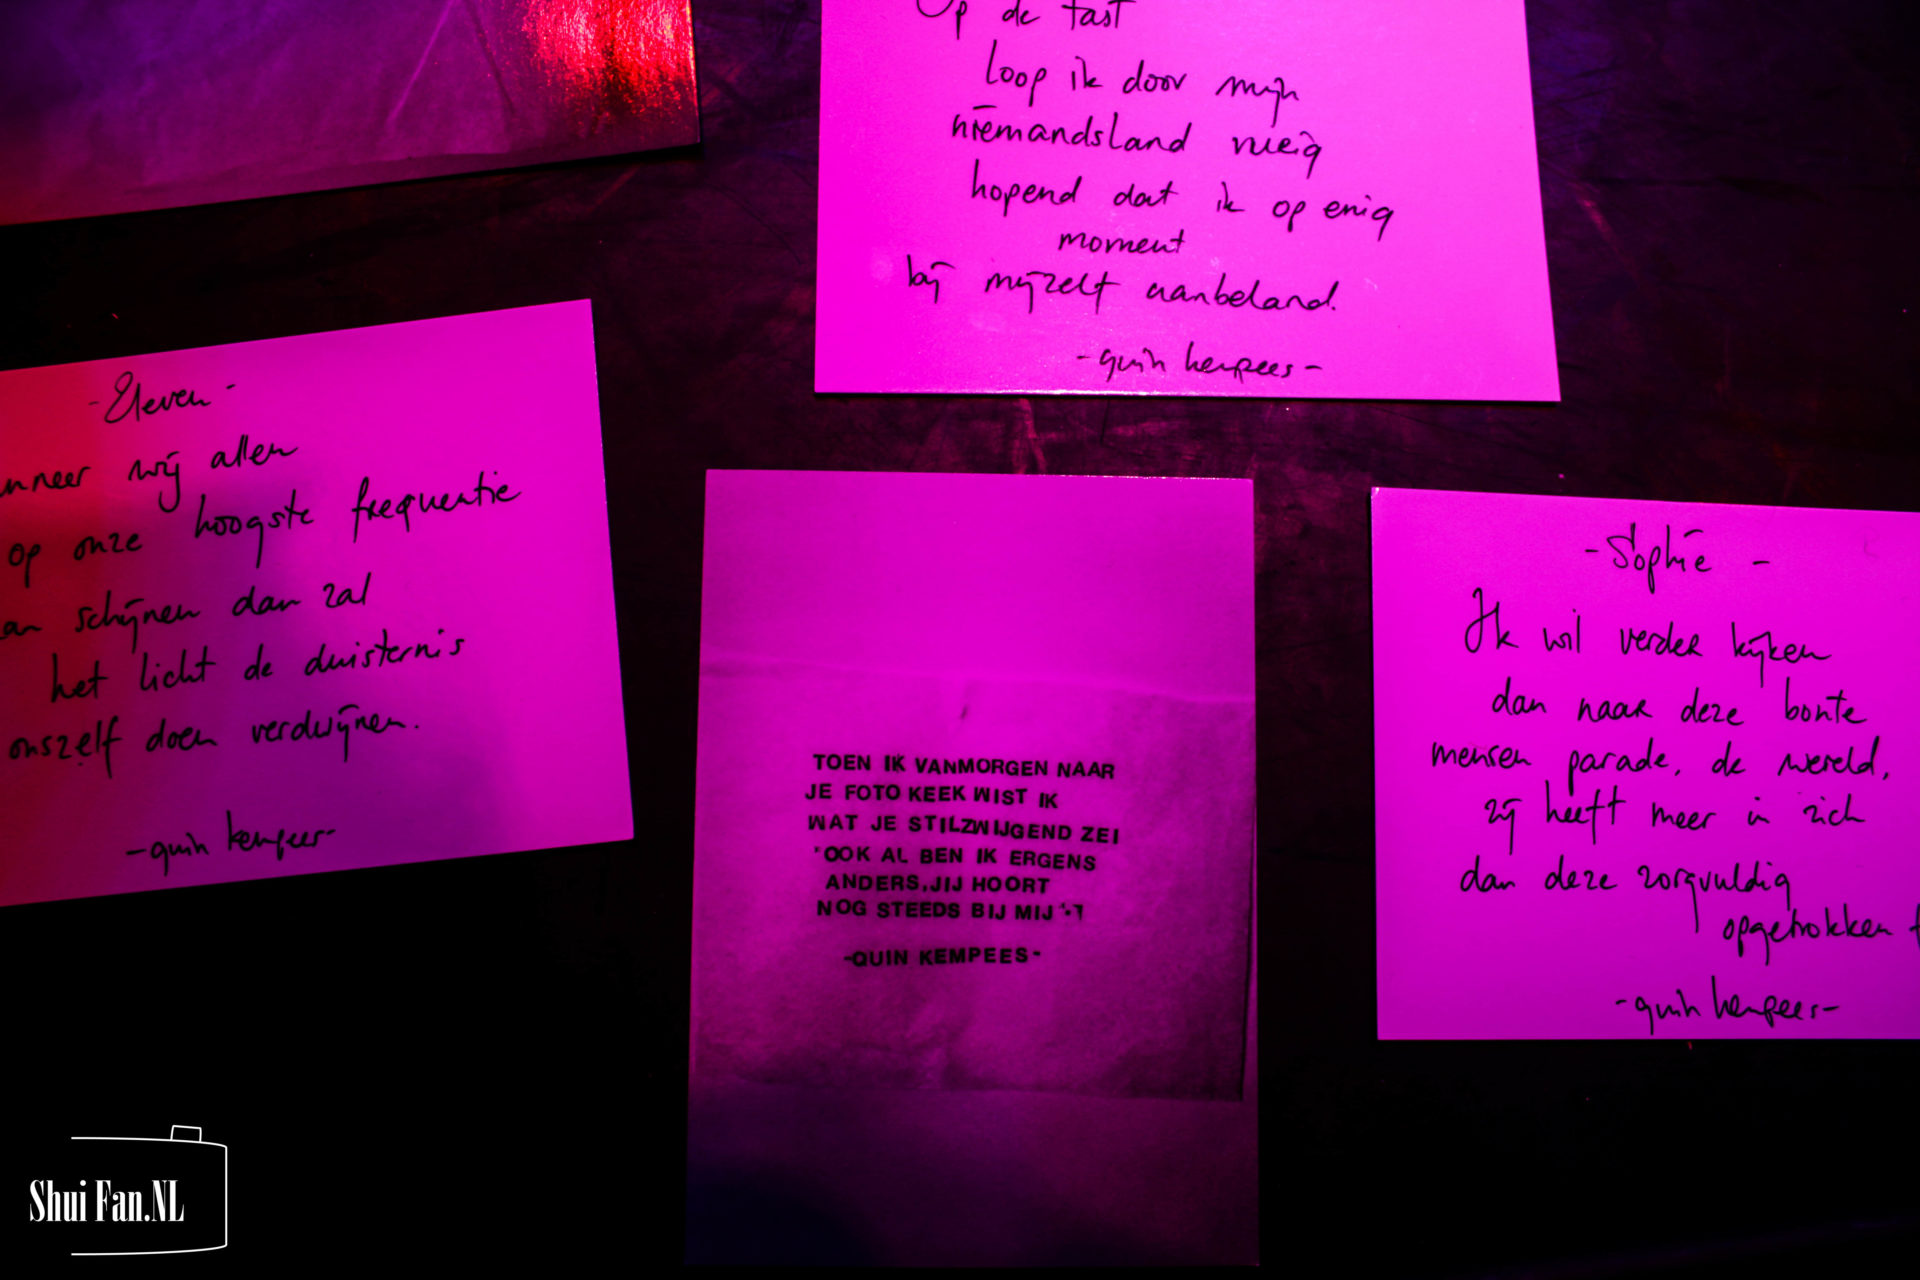 Op de tast
loop ik door mijn
niemandsland
hopend dat ik op enig
moment
bij mijzelf aanbeland.
-quin kempees-
-Eleven-
nneer wij allen
op onze hoogste frequentie
an schijnen dan zal
het licht de duisternis
onszelf doen verdwijnen.
-quin kempees-
TOEN IK VANMORGEN NAAR
JE FOTO KEEK WIST IK
WAT JE STILZWIJGEND ZEI
"OOK AL BEN IK ERGENS
ANDERS, JIJ HOORT
NOG STEEDS BIJ MIJ"
-QUIN KEMPEES-
-Sophie-
Ik wil verder kijken
dan naar deze bonte
mensen parade, de wereld,
zij heeft meer in zich
dan deze zorgvuldig
opgetrokken
-quin kempees-
Shui Fan.NL